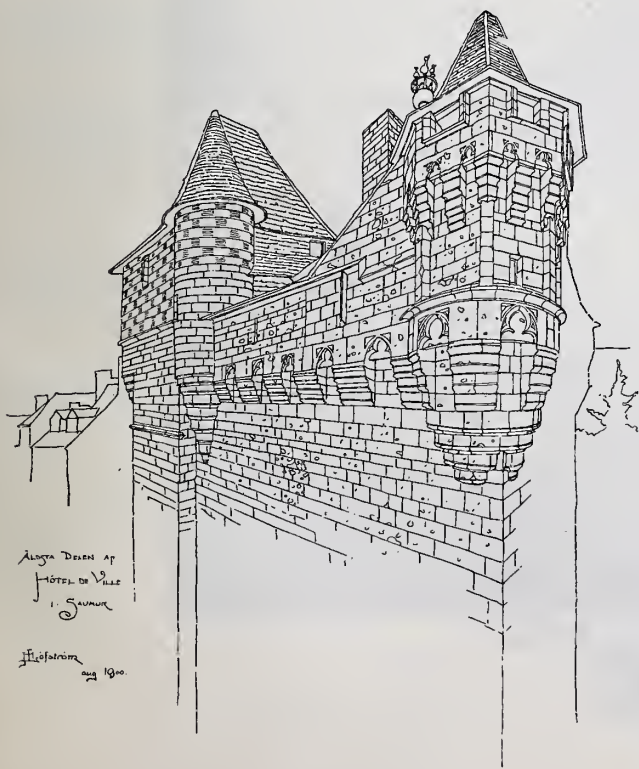 ÄLDSTA DELEN AF
HÔTEL DE VILLE
I. SAUMUR
Löfström
aug 1900.